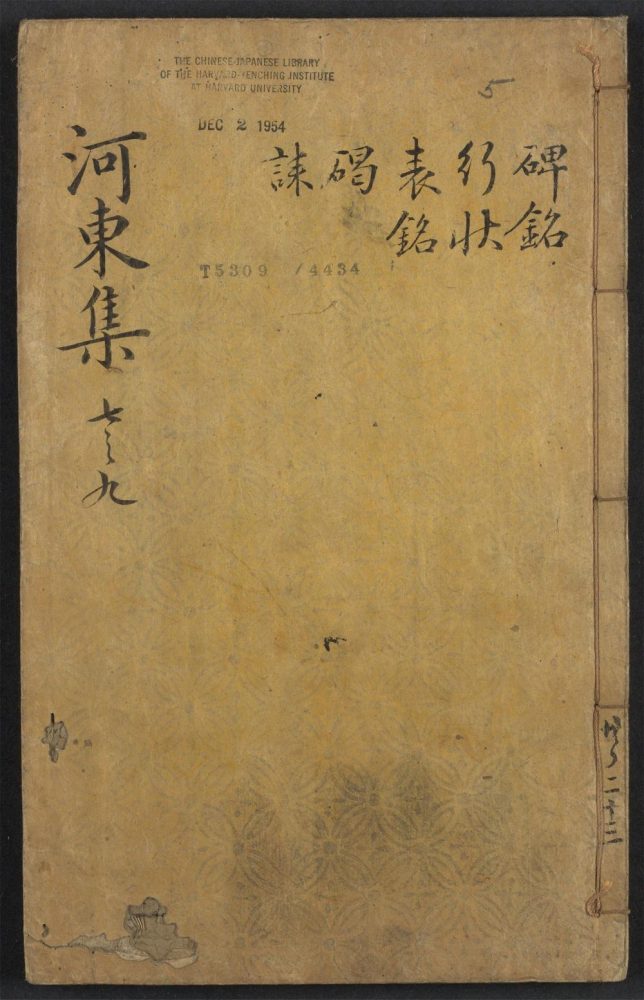 THE CHINESE-JAPANESE LIBRARY
OF THE HARVARD-YENCHING INSTITUTE
AT HARVARD UNIVERSITY
DEC 2 1954
5
碑銘
行狀
表銘
碣
誄
T5309 /4434
河東集
七之九
二十二